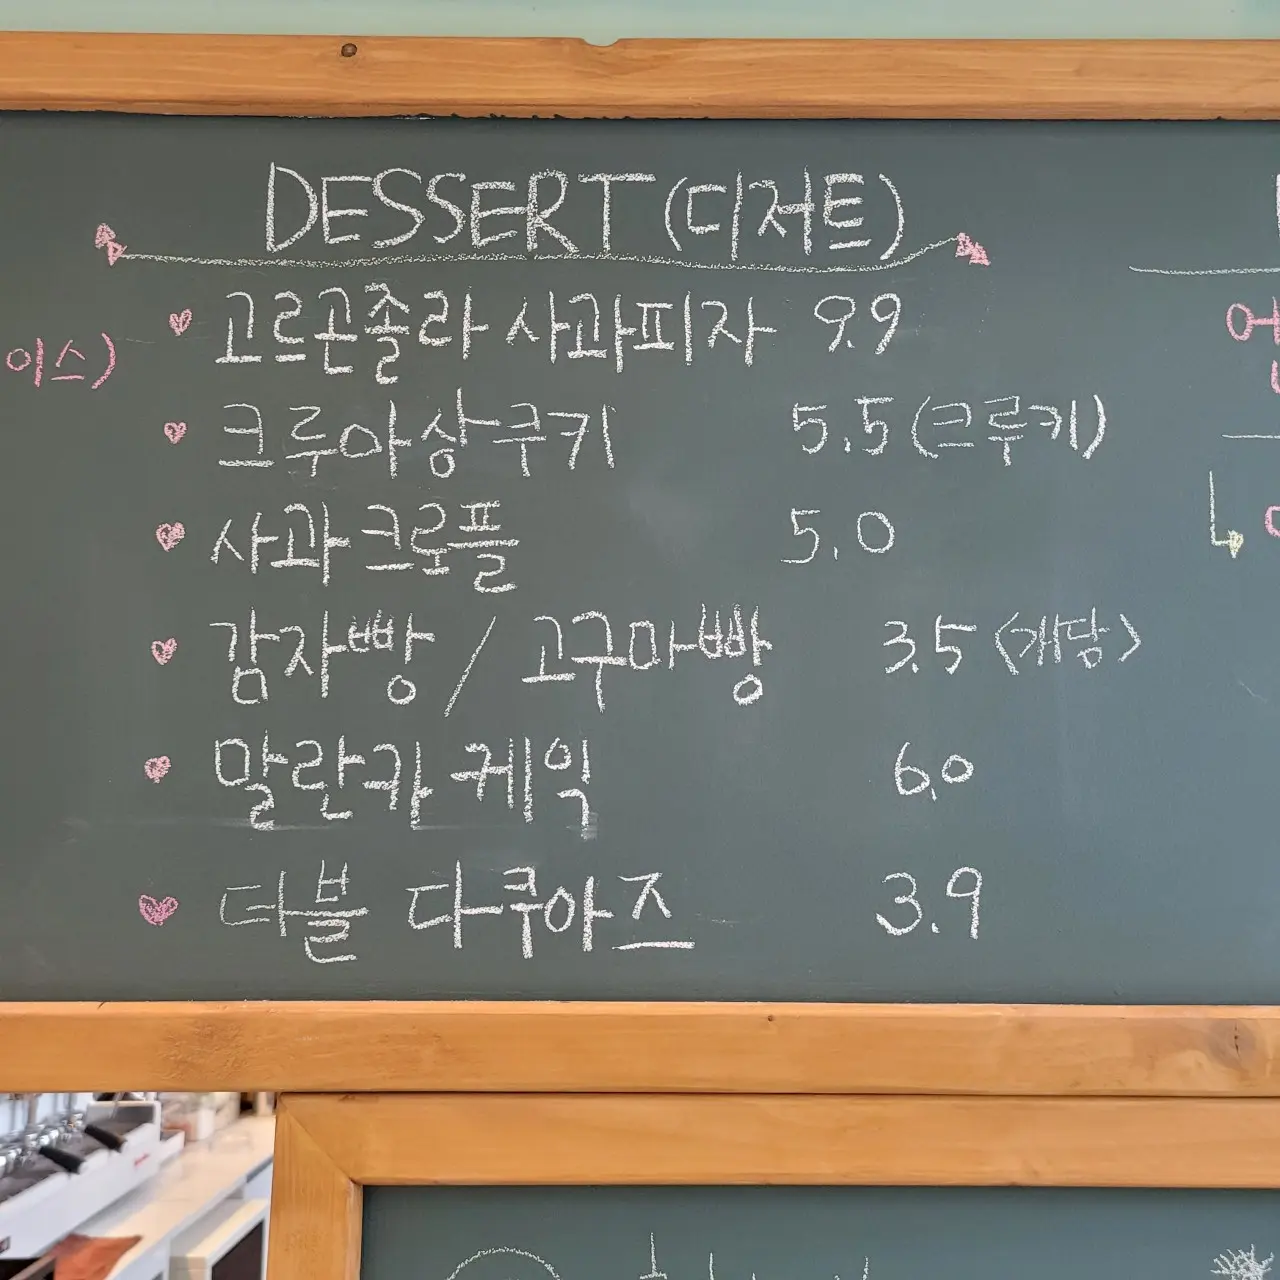 DESSERT (디저트)
고르곤졸라 사과피자 9.9
크루아상쿠키 5.5 (크루키)
사과크로플 5.0
감자빵 / 고구마빵 3.5 <개당>
말란카 케익 6.0
더블 다쿠아즈 3.9
이스)